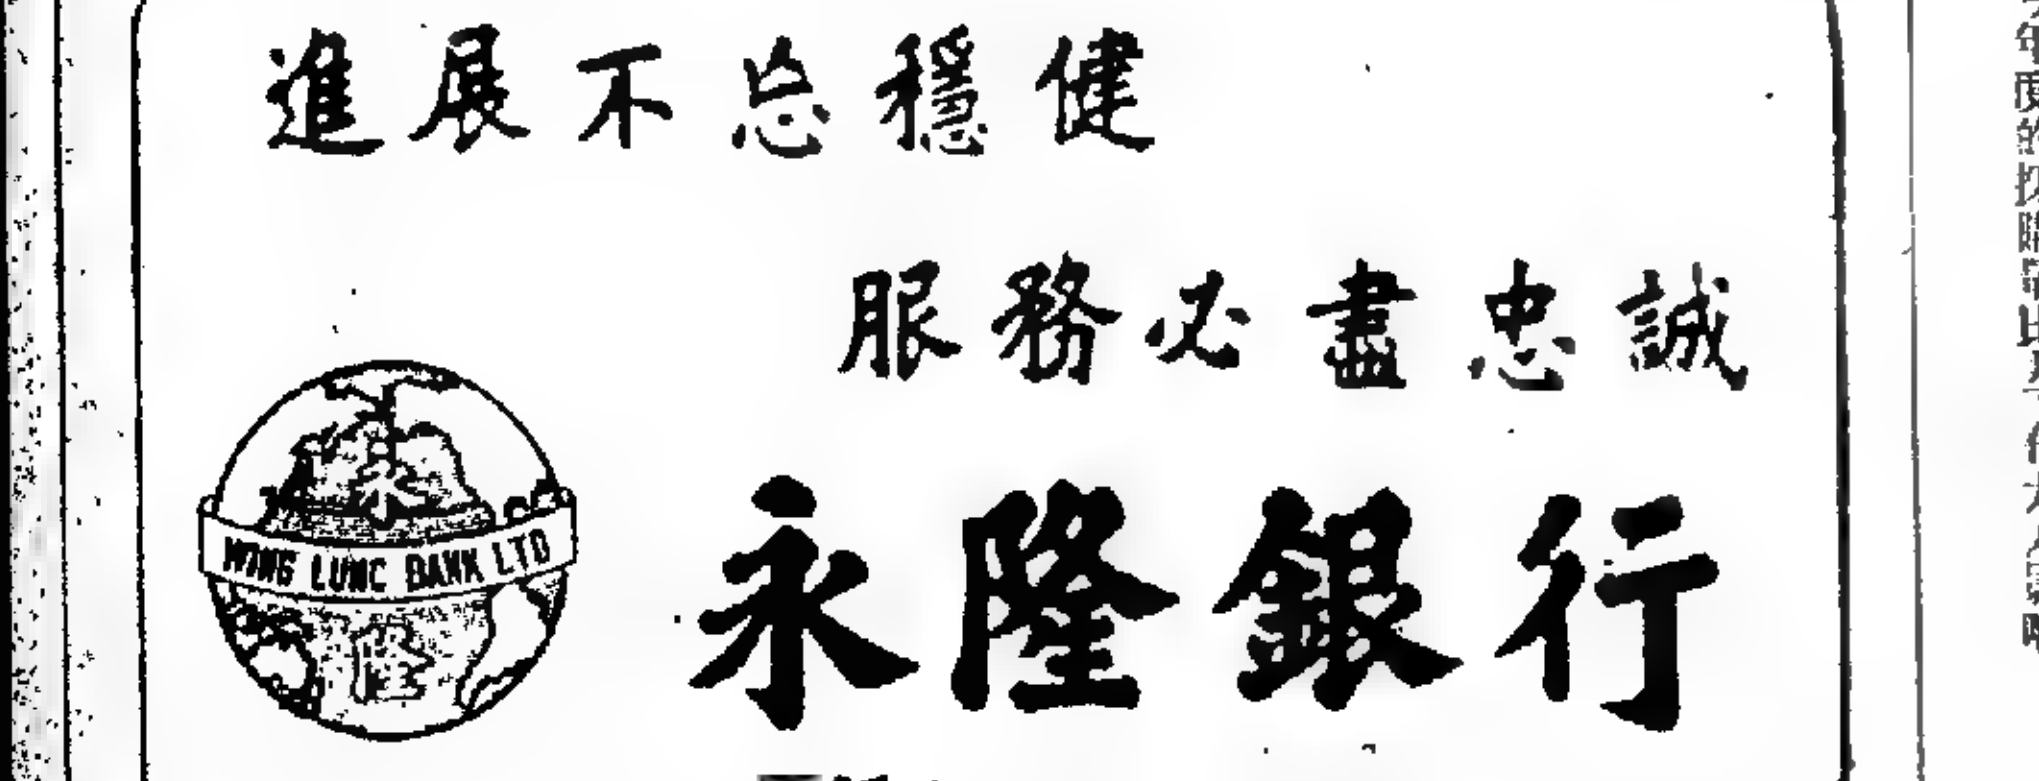 進展不忘穩健
服務必盡忠誠
永
WING LUNG BANK LTD
隆
永隆銀行